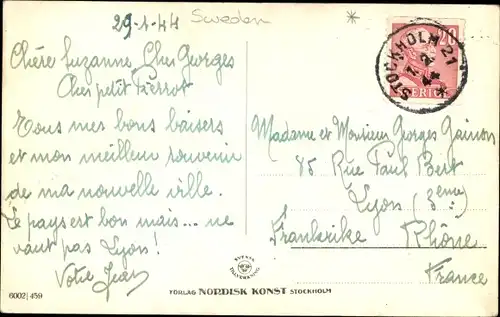 29-1-44 Sweden *
Chère Suzanne, Cher Georges
Cher petit Pierrot
Tous mes bons baisers
et mon meilleur souvenir
de ma nouvelle ville.
Le pays est bon mais... ne
vaut pas Lyon!
Votre Jean
STOCKHOLM 21
20
SVERIGE
Madame et Monsieur Georges Gainon
85 Rue Paul Bert
Lyon (3ème)
Frankrike Rhône
France
SVENSK
TILLVERKNING
6002/459
FÖRLAG NORDISK KONST STOCKHOLM